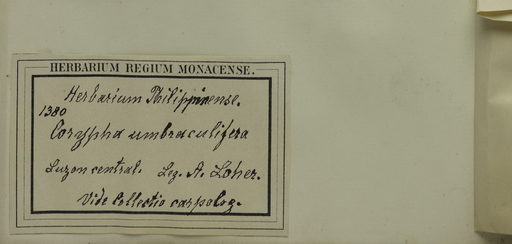 HERBARIUM REGIUM MONACENSE.
Herbarium Philippinense.
1380
Corypha umbraculifera
Luzon central. Leg. A. Loher.
Vide Collectio carpolog.